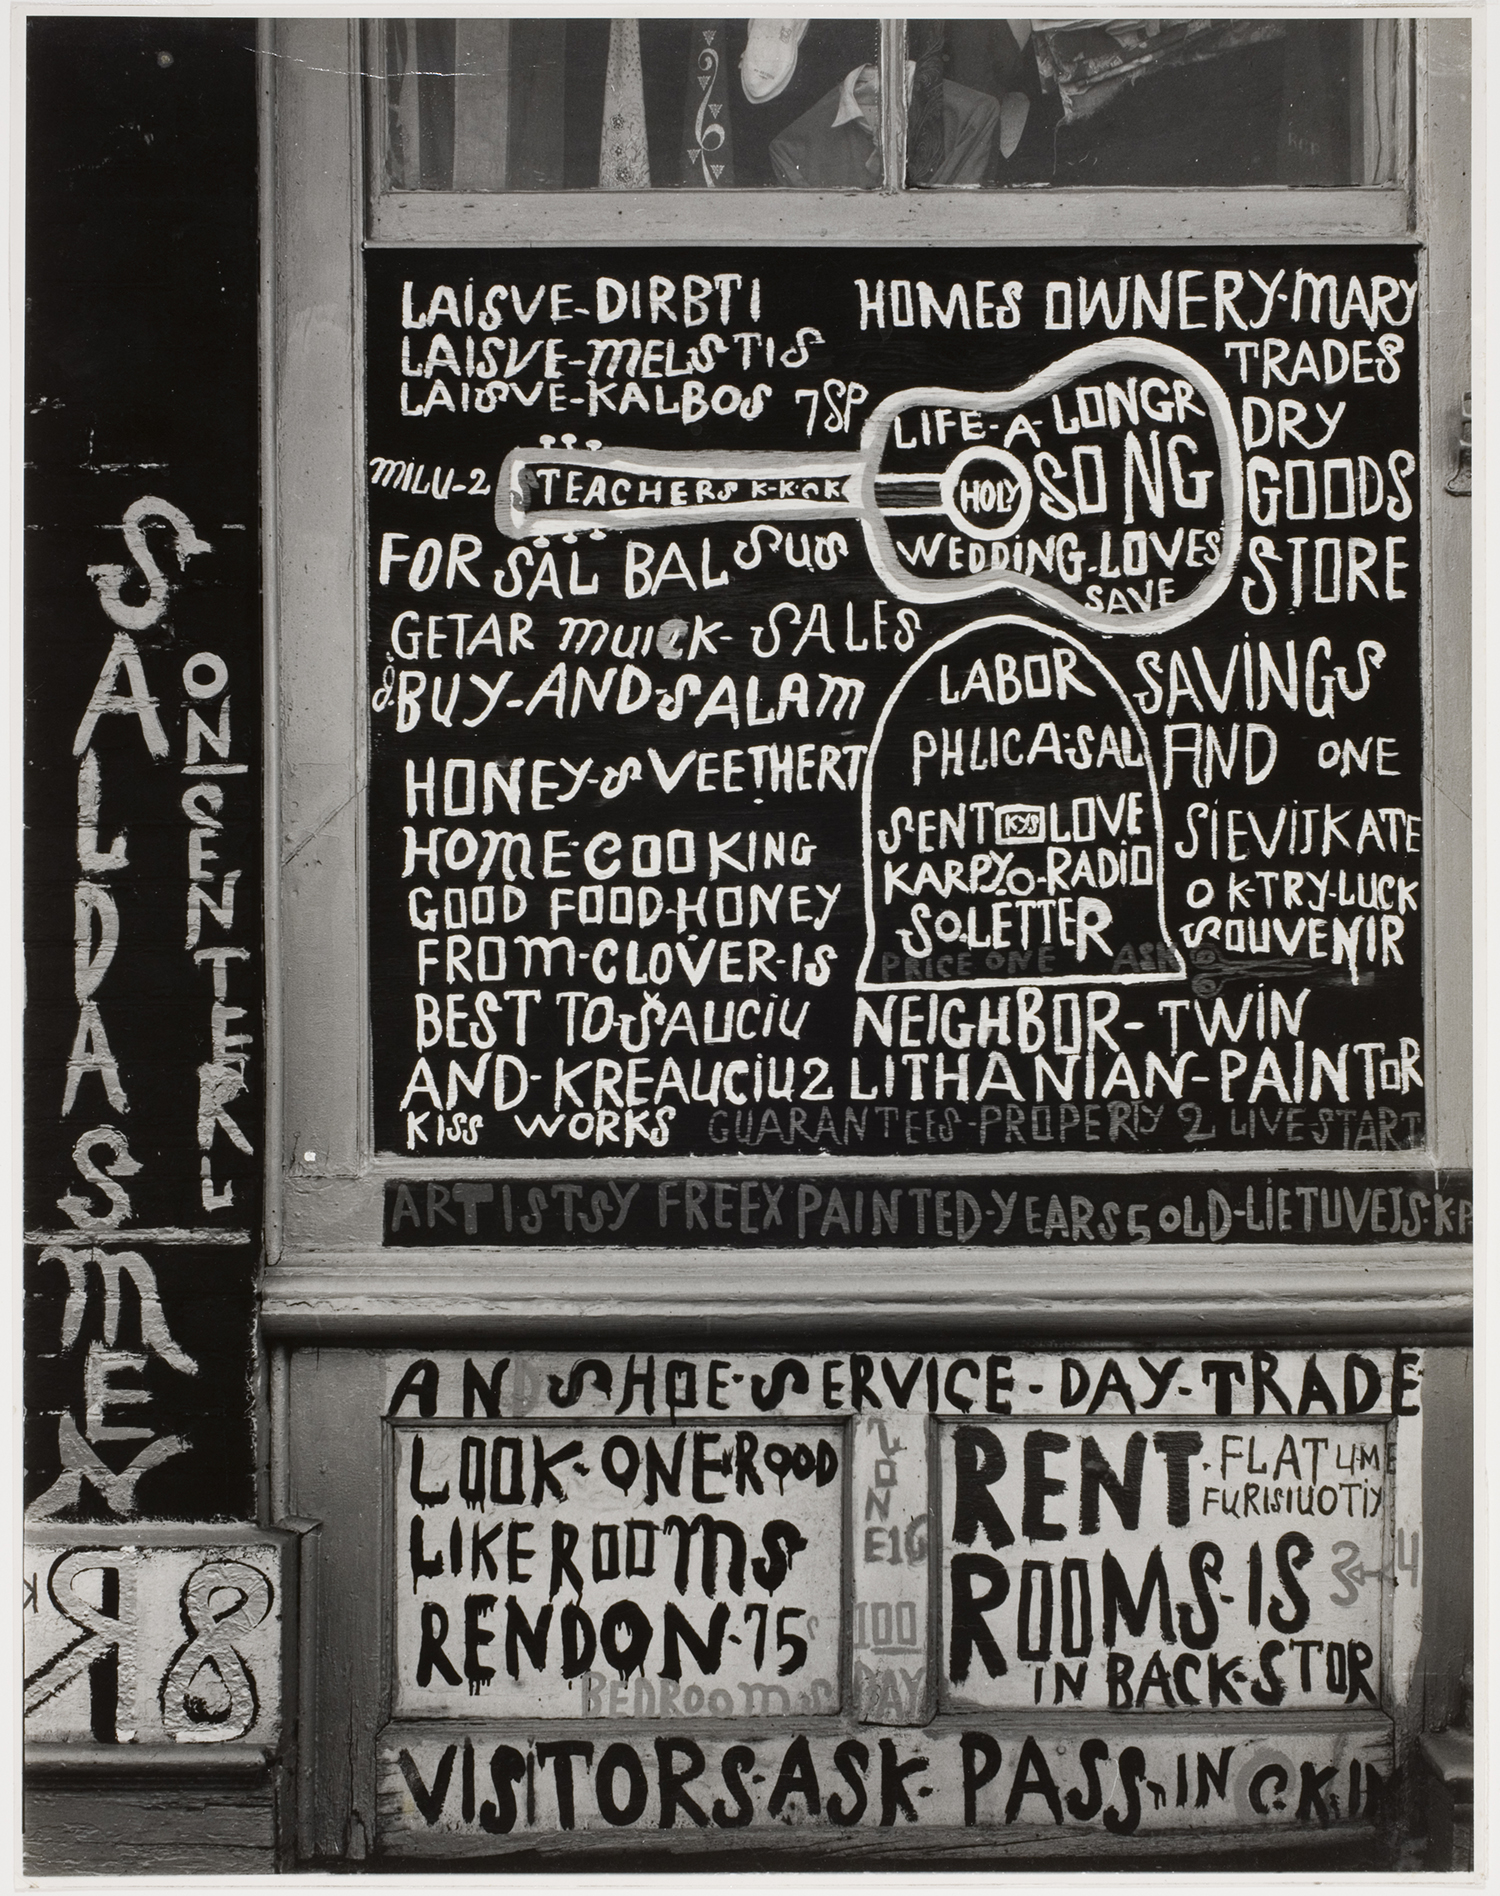 SALDAS MEN
ONSENTERL
R8
LAISVE-DIRBTI
LAISVE-MELSTIS
LAISVE-KALBOS 7SP
MILU-2
TEACHERS K-K-O-K
FOR SAL BALSUS
GETAR MUICK-SALES
BUY-AND-SALAM
HONEY-S VEETHERT
HOME-COOKING
GOOD FOOD-HONEY
FROM-CLOVER-IS
BEST TO-ŠAUCIU
AND-KREAUCIU2
KISS WORKS
HOMES OWNERY-MARY
TRADES
DRY
GOODS
STORE
LIFE-A-LONGR
HOLY SONG
WEDDING-LOVES
SAVE
LABOR
PHLICA-SAL
SENT KYS LOVE
KARPY-O-RADIO
SO.LETTER
PRICE ONE ASK
SAVINGS
AND ONE
SIEVIJKATE
OK-TRY-LUCK
SOUVENIR
NEIGHBOR-TWIN
LITHANIAN-PAINTOR
GUARANTEES-PROPERIY 2 LIVE-START
ARTISTSY FREEX PAINTED-YEARS 5 OLD-LIETUVEJS-KP
AND SHOE-SERVICE-DAY-TRADE
LOOK-ONE-ROOD
LIKE ROOMS
RENDON-75
BEDROOMS
ZONE16
100
DAY
RENT-FLAT 4-ME
FURISIUOTIY
ROOMS-IS 3-4
IN BACK-STOR
VISITORS-ASK-PASS-IN CKIN